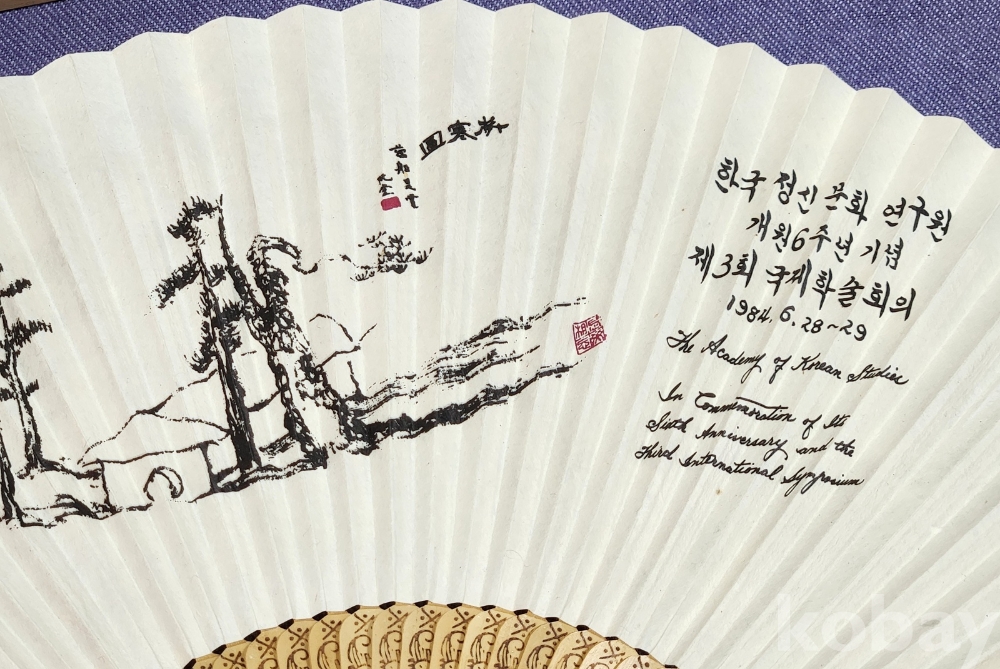 歲寒圖
藕船是賞
阮堂
한국 정신 문화 연구원
개원6주년 기념
제3회 국제학술회의
1984. 6. 28~29
The Academy of Korean Studies
In Commemoration of Its
Sixth Anniversary and the
Third International Symposium
kobay